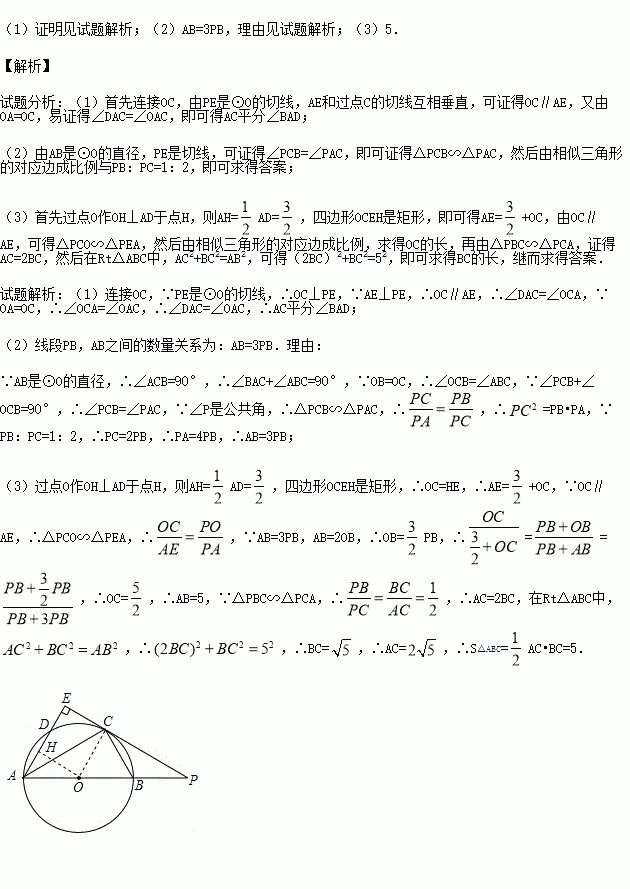 (1)证明见试题解析;(2)AB=3PB,理由见试题解析;(3)5.
【解析】
试题分析:(1)首先连接OC,由PE是⊙O的切线,AE和过点C的切线互相垂直,可证得OC∥AE,又由
OA=OC,易证得∠DAC=∠OAC,即可得AC平分∠BAD;
(2)由AB是⊙O的直径,PE是切线,可证得∠PCB=∠PAC,即可证得△PCB∽△PAC,然后由相似三角形
的对应边成比例与PB:PC=1:2,即可求得答案;
(3)首先过点O作OH⊥AD于点H,则AH=1/2 AD=3/2 ,四边形OCEH是矩形,即可得AE=3/2 +OC,由OC∥
AE,可得△PCO∽△PEA,然后由相似三角形的对应边成比例,求得OC的长,再由△PBC∽△PCA,证得
AC=2BC,然后在Rt△ABC中,AC²+BC²=AB²,可得(2BC)²+BC²=5²,即可求得BC的长,继而求得答案.
试题解析:(1)连接OC,∵PE是⊙O的切线,∴OC⊥PE,∵AE⊥PE,∴OC∥AE,∴∠DAC=∠OCA,∵
OA=OC,∴∠OCA=∠OAC,∴∠DAC=∠OAC,∴AC平分∠BAD;
(2)线段PB,AB之间的数量关系为:AB=3PB.理由:
∵AB是⊙O的直径,∴∠ACB=90°,∴∠BAC+∠ABC=90°,∵OB=OC,∴∠OCB=∠ABC,∵∠PCB+∠
OCB=90°,∴∠PCB=∠PAC,∵∠P是公共角,∴△PCB∽△PAC,∴PC/PA=PB/PC ,∴PC²=PB•PA,∵
PB:PC=1:2,∴PC=2PB,∴PA=4PB,∴AB=3PB;
(3)过点O作OH⊥AD于点H,则AH=1/2 AD=3/2 ,四边形OCEH是矩形,∴OC=HE,∴AE=3/2 +OC,∵OC∥
AE,∴△PCO∽△PEA,∴OC/AE=PO/PA ,∵AB=3PB,AB=2OB,∴OB=3/2 PB,∴OC/(3/2+OC)=(PB+OB)/(PB+AB)=
(PB+3/2PB)/(PB+3PB) ,∴OC=5/2 ,∴AB=5,∵△PBC∽△PCA,∴PB/PC=BC/AC=1/2 ,∴AC=2BC,在Rt△ABC中,
AC²+BC²=AB² ,∴(2BC)²+BC²=5² ,∴BC=√5 ,∴AC=2√5 ,∴S△ABC=1/2 AC•BC=5.
E
D
C
H
A
O
B
P